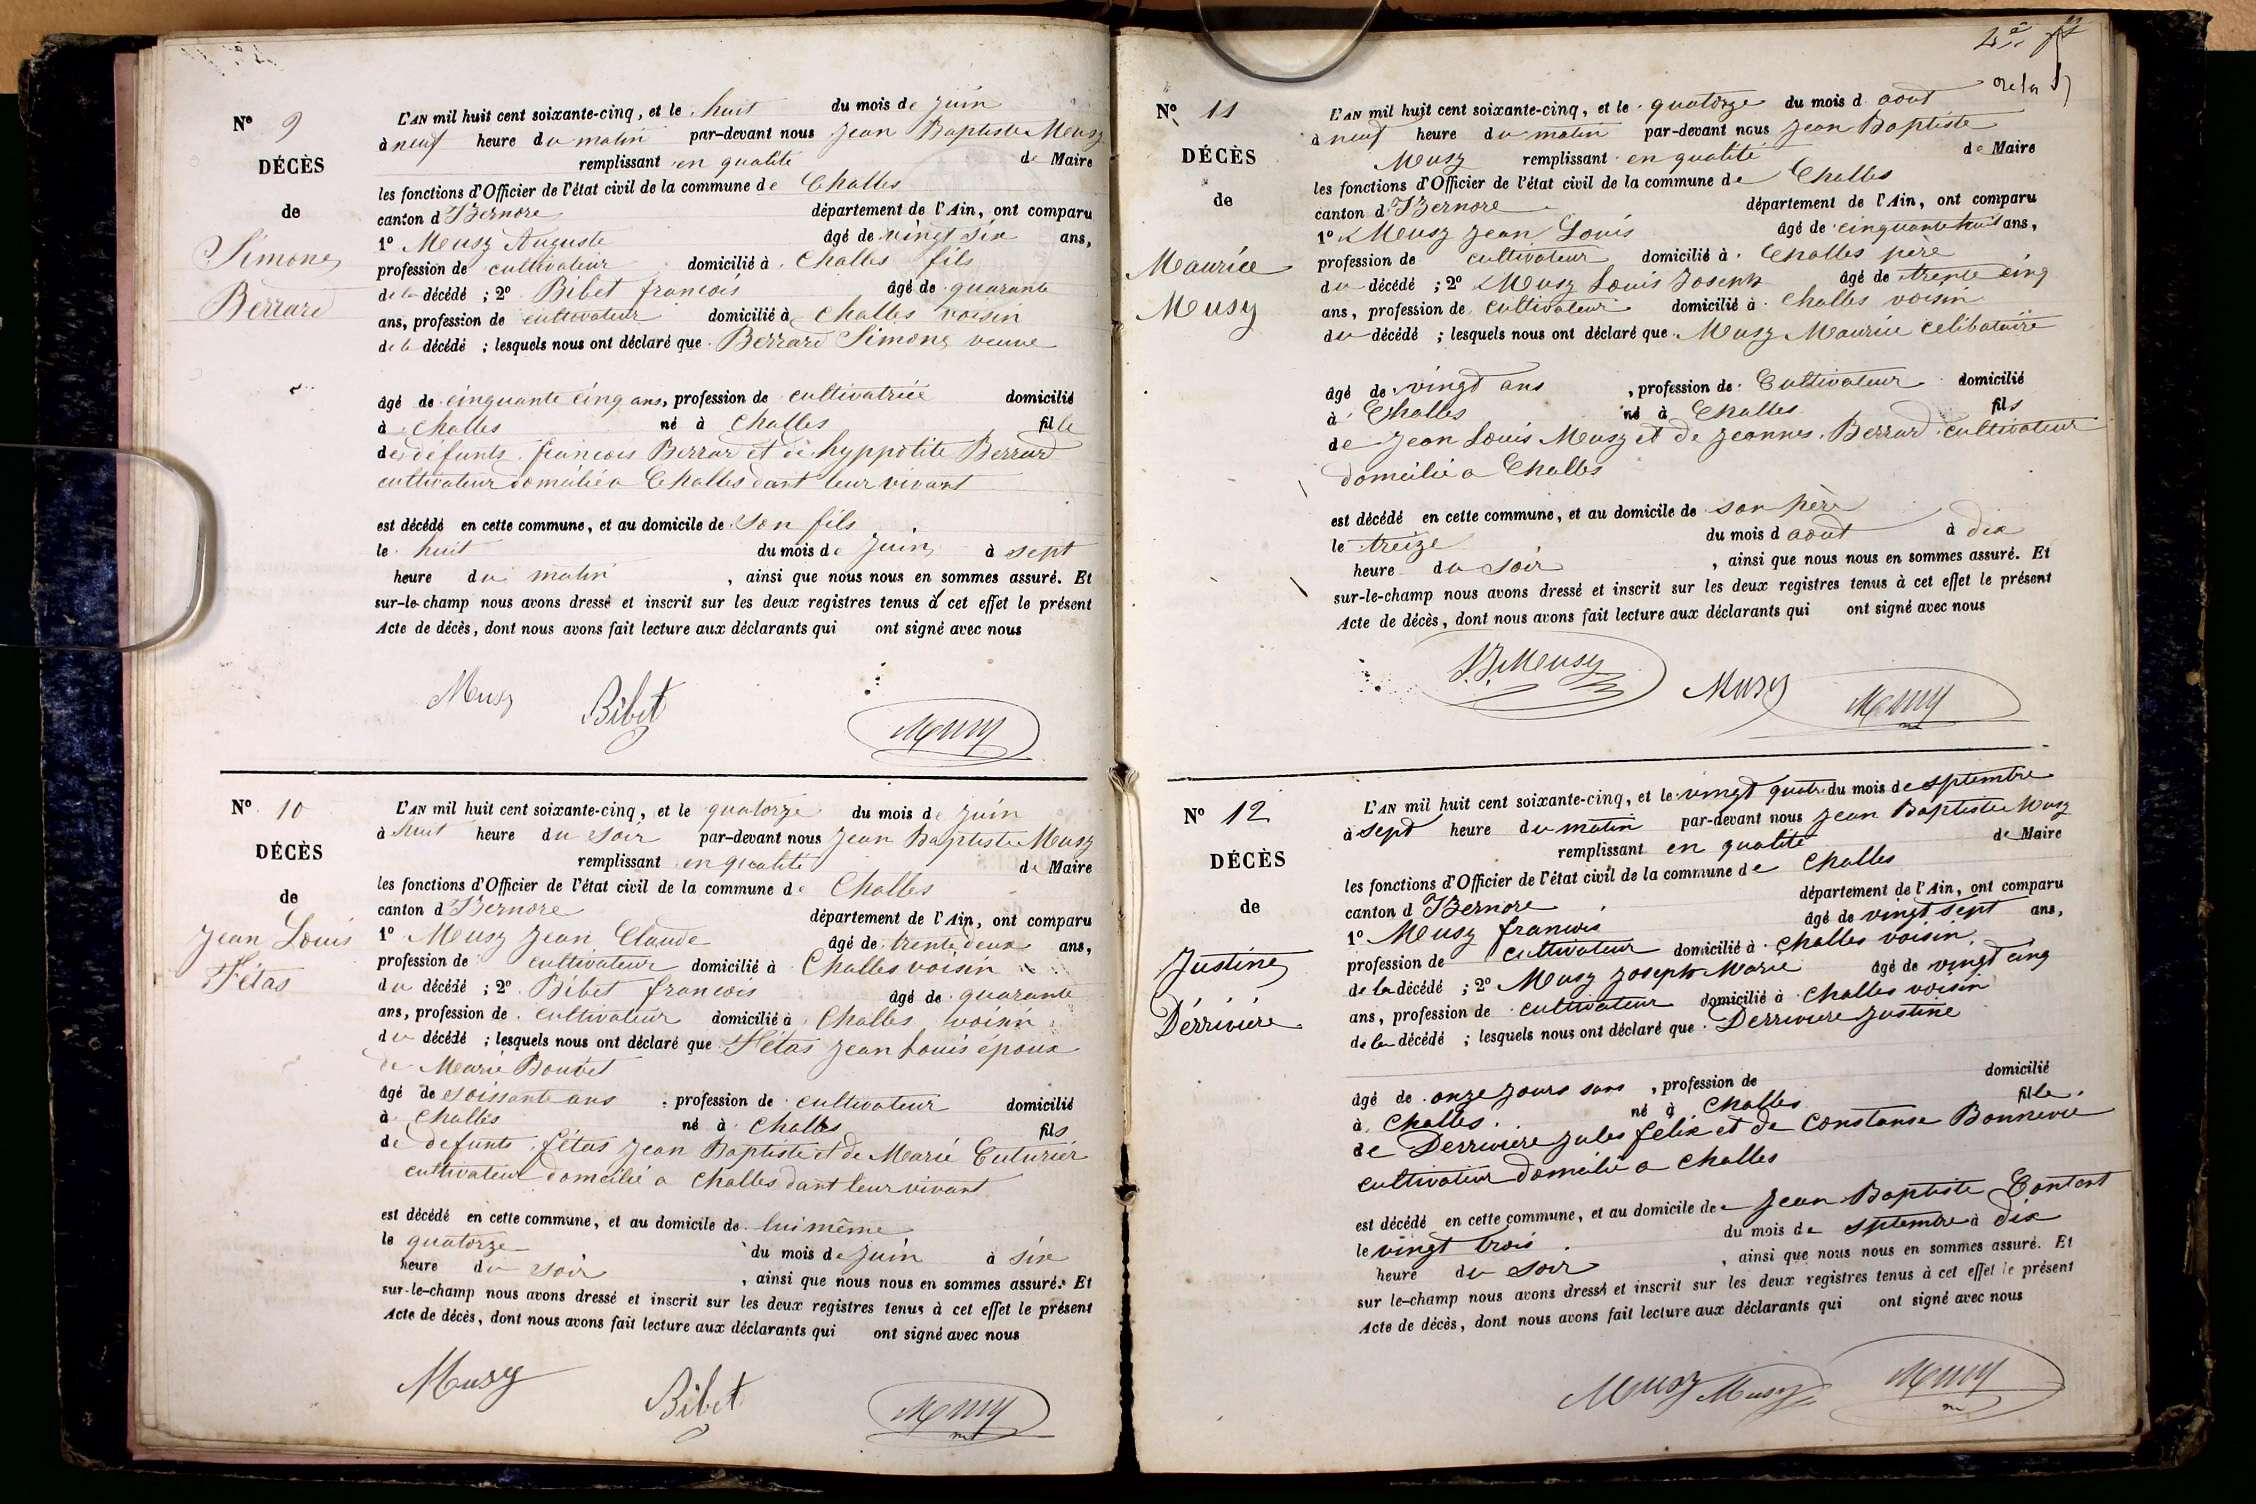 N° 9
DÉCÈS
de
Simone
Berrard
L'AN mil huit cent soixante-cinq, et le huit du mois de juin
à neuf heure du matin par-devant nous Jean Baptiste Musy
remplissant en qualité de Maire
les fonctions d'Officier de l'état civil de la commune de Challes
canton d Izernore département de l'Ain, ont comparu
1° Musy Auguste âgé de vingt six ans,
profession de cultivateur domicilié à Challes fils
de la décédé ; 2° Bibet francois âgé de quarante
ans, profession de cultivateur domicilié à Challes voisin
de la décédé ; lesquels nous ont déclaré que Berrard Simone veuve
âgé de cinquante cinq ans, profession de cultivatrice domicilié
à Challes né à Challes fille
des défunts francois Berrard et de hyppolite Berrard
cultivateur domicilié a Challes dant leur vivant
est décédé en cette commune, et au domicile de son fils
le huit du mois de juin à sept
heure du matin , ainsi que nous nous en sommes assuré. Et
sur-le-champ nous avons dressé et inscrit sur les deux registres tenus à cet effet le présent
Acte de décès, dont nous avons fait lecture aux déclarants qui ont signé avec nous
Musy Bibet Musy
N° 10
DÉCÈS
de
Jean Louis
Fétas
L'AN mil huit cent soixante-cinq, et le quatorze du mois de juin
à huit heure du soir par-devant nous Jean Baptiste Musy
remplissant en qualité de Maire
les fonctions d'Officier de l'état civil de la commune de Challes
canton d Izernore département de l'Ain, ont comparu
1° Musy Jean Claude âgé de trente deux ans,
profession de cultivateur domicilié à Challes voisin
du décédé ; 2° Bibet francois âgé de quarante
ans, profession de cultivateur domicilié à Challes voisin
du décédé ; lesquels nous ont déclaré que Fétas Jean Louis époux
de Marie Bouvet
âgé de soissante ans , profession de cultivateur domicilié
à Challes né à Challes fils
de defunts fétas Jean Baptiste et de Marie Cuturier
cultivateur domicilié a Challes dant leur vivant
est décédé en cette commune, et au domicile de lui même
le quatorze du mois de juin à six
heure du soir , ainsi que nous nous en sommes assuré. Et
sur-le-champ nous avons dressé et inscrit sur les deux registres tenus à cet effet le présent
Acte de décès, dont nous avons fait lecture aux déclarants qui ont signé avec nous
Musy Bibet Musy
N° 11
DÉCÈS
de
Maurice
Musy
L'AN mil huit cent soixante-cinq, et le quatorze du mois d aout
à neuf heure du matin par-devant nous Jean Baptiste
Musy remplissant en qualité de Maire
les fonctions d'Officier de l'état civil de la commune de Challes
canton d Izernore département de l'Ain, ont comparu
1° Musy Jean Louis âgé de cinquante huit ans,
profession de cultivateur domicilié à Challes père
du décédé ; 2° Musy Louis Joseph âgé de trente cinq
ans, profession de cultivateur domicilié à Challes voisin
du décédé ; lesquels nous ont déclaré que Musy Maurice celibataire
âgé de vingt ans , profession de Cultivateur domicilié
à Challes né à Challes fils
de Jean Louis Musy et de Jeanne Berrard cultivateur
domicilié a Challes
est décédé en cette commune, et au domicile de son père
le treize du mois d aout à dix
heure du soir , ainsi que nous nous en sommes assuré. Et
sur-le-champ nous avons dressé et inscrit sur les deux registres tenus à cet effet le présent
Acte de décès, dont nous avons fait lecture aux déclarants qui ont signé avec nous
Musy Musy Musy
N° 12
DÉCÈS
de
Justine
Dérriviere
L'AN mil huit cent soixante-cinq, et le vingt quatre du mois de septembre
à sept heure du matin par-devant nous Jean Baptiste Musy
remplissant en qualité de Maire
les fonctions d'Officier de l'état civil de la commune de Challes
canton d Izernore département de l'Ain, ont comparu
1° Musy francois âgé de vingt sept ans,
profession de cultivateur domicilié à Challes voisin
de la décédé ; 2° Musy Joseph Marie âgé de vingt cinq
ans, profession de cultivateur domicilié à Challes voisin
de la décédé ; lesquels nous ont déclaré que Derriviere Justine
âgé de onze jours sans , profession de domicilié
à Challes né à Challes fille
de Derriviere Jules félix et de Constanse Bonnevie
cultivateur domicilié a Challes
est décédé en cette commune, et au domicile de Jean Baptiste Contant
le vingt trois du mois de septembre à dix
heure du soir , ainsi que nous nous en sommes assuré. Et
sur le-champ nous avons dressé et inscrit sur les deux registres tenus à cet effet le présent
Acte de décès, dont nous avons fait lecture aux déclarants qui ont signé avec nous
Musy Musy Musy